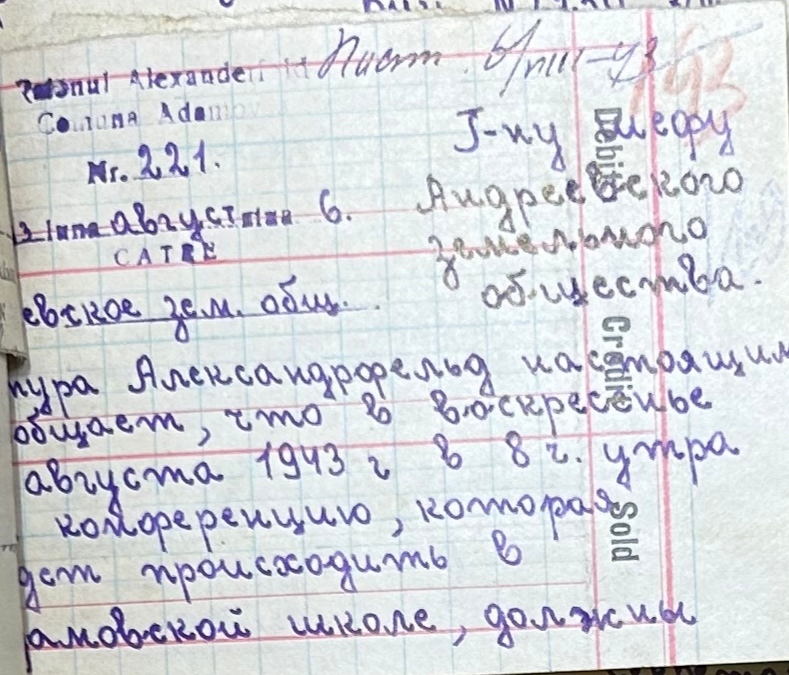 Alexander
Comuna Adam
Nr. 221.
август 6.
CATRE
евское зем. общ.
6/VIII-43
193
Г-ну шефу
Андреевского
земельного
общества.
Debit
Credit
Sold
тура Александрофельд настоящим
общает, что в воскресенье
августа 1943 г в 8 ч. утра
конференцию, которая
дет происходить в
амовской школе, должны